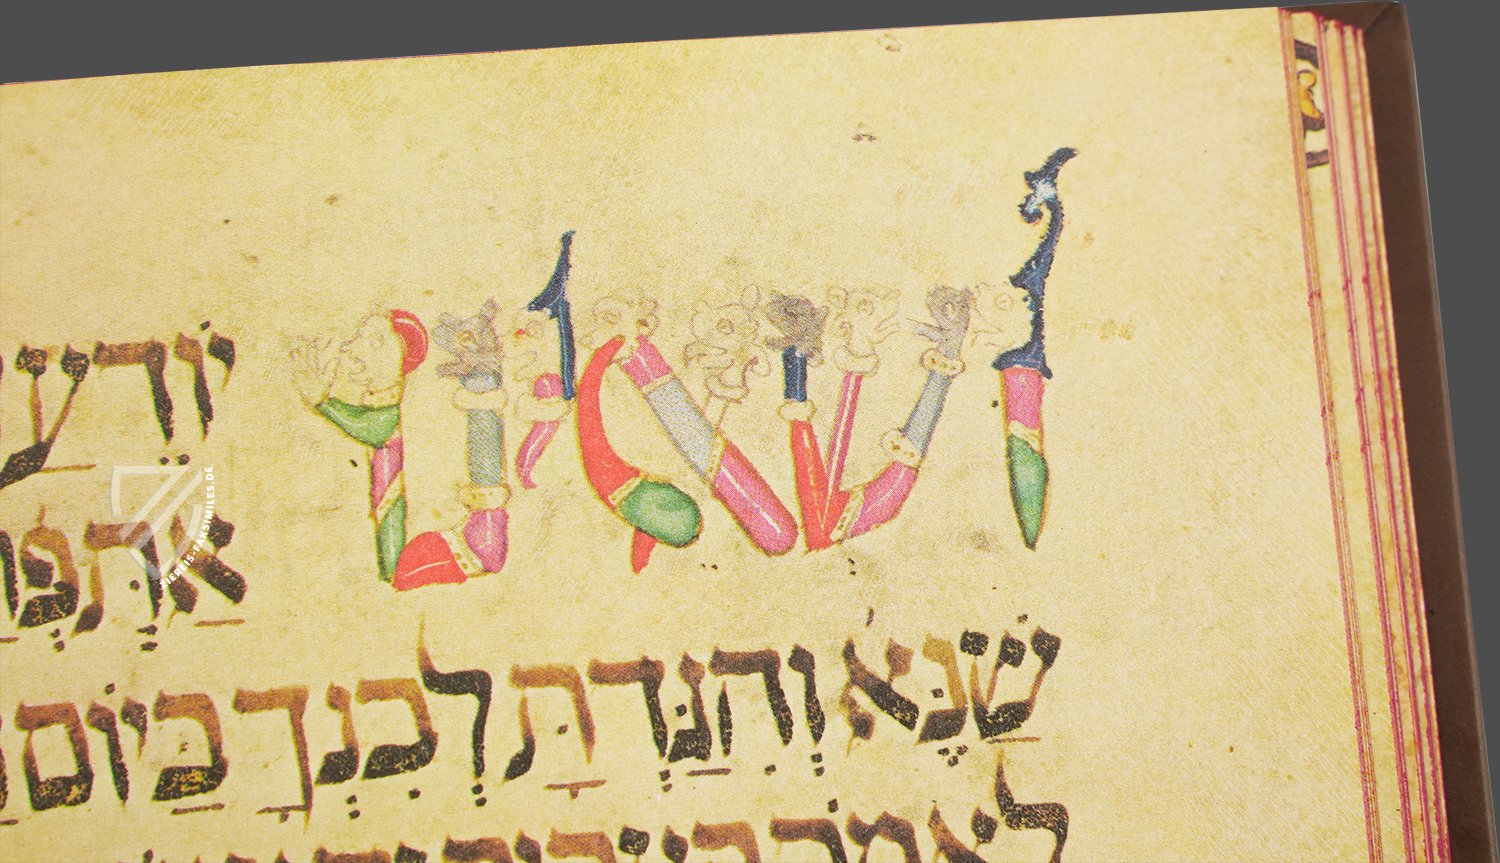 ושאינו יוֹדֵע
אַתְּ
שַׁנֶּא וְהִגַּדְתָּ לְבִנְךָ בַּיוֹם
לאמֹר
ZIEREIS-FAKSIMILES.DE